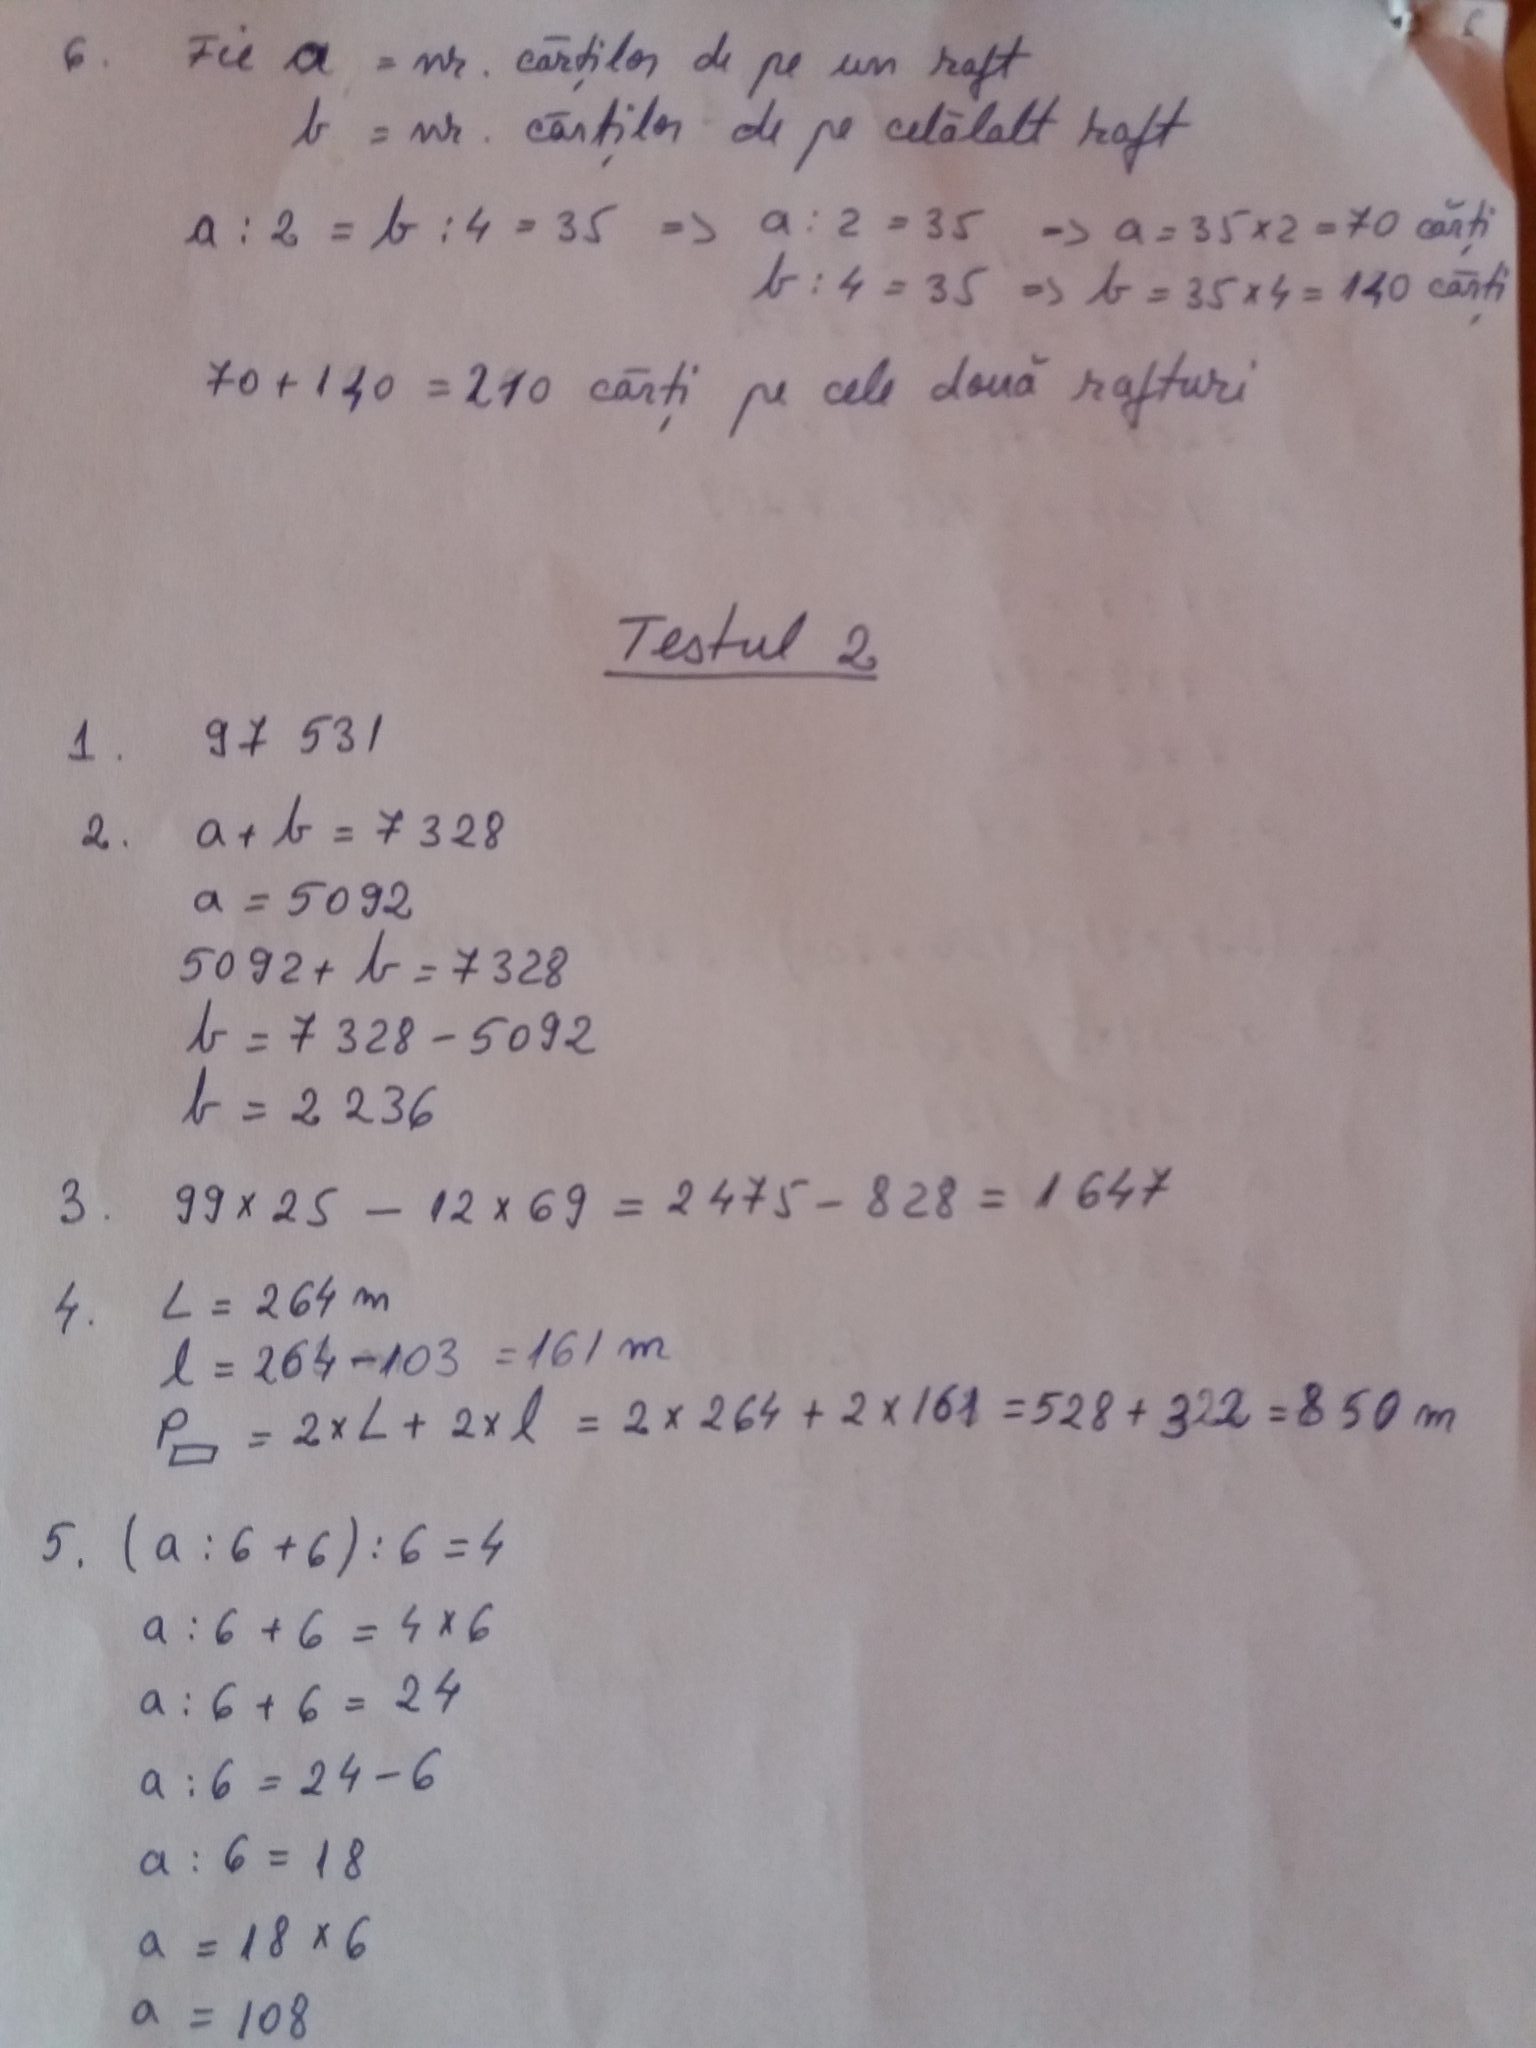 6. Fie a = nr. cărților de pe un raft
b = nr. cărților de pe celălalt raft
a : 2 = b : 4 = 35 => a : 2 = 35 => a = 35 x 2 = 70 cărți
b : 4 = 35 => b = 35 x 4 = 140 cărți
70 + 140 = 210 cărți pe cele două rafturi
Testul 2
1. 97 531
2. a + b = 7 328
a = 5092
5092 + b = 7328
b = 7 328 - 5092
b = 2 236
3. 99 x 25 - 12 x 69 = 2475 - 828 = 1 647
4. L = 264 m
l = 264 - 103 = 161 m
P▭ = 2 x L + 2 x l = 2 x 264 + 2 x 161 = 528 + 322 = 850 m
5. (a : 6 + 6) : 6 = 4
a : 6 + 6 = 4 x 6
a : 6 + 6 = 24
a : 6 = 24 - 6
a : 6 = 18
a = 18 x 6
a = 108